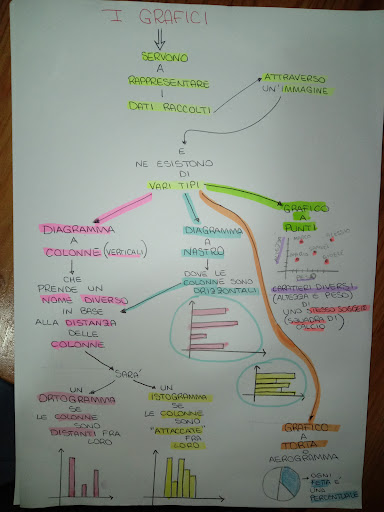 I GRAFICI
SERVONO
A
RAPPRESENTARE
I
DATI RACCOLTI
ATTRAVERSO
UN'IMMAGINE
E
NE ESISTONO
DI
VARI TIPI
DIAGRAMMA
A
COLONNE (VERTICALI)
CHE
PRENDE UN
NOME DIVERSO
IN BASE
ALLA DISTANZA
DELLE
COLONNE
SARA'
UN
ORTOGRAMMA
SE
LE COLONNE
SONO
DISTANTI FRA
LORO
UN
ISTOGRAMMA
SE
LE COLONNE
SONO
"ATTACCATE"
FRA
LORO
DIAGRAMMA
A
NASTRO
DOVE LE
COLONNE SONO
ORIZZONTALI
GRAFICO
A
PUNTI
CARATTERI DIVERSI
(ALTEZZA E PESO)
DI
UNO STESSO SOGGETTO
(SQUADRA DI
CALCIO
GRAFICO
A
TORTA
O
AEROGRAMMA
OGNI
FETTA È
UNA
PERCENTUALE